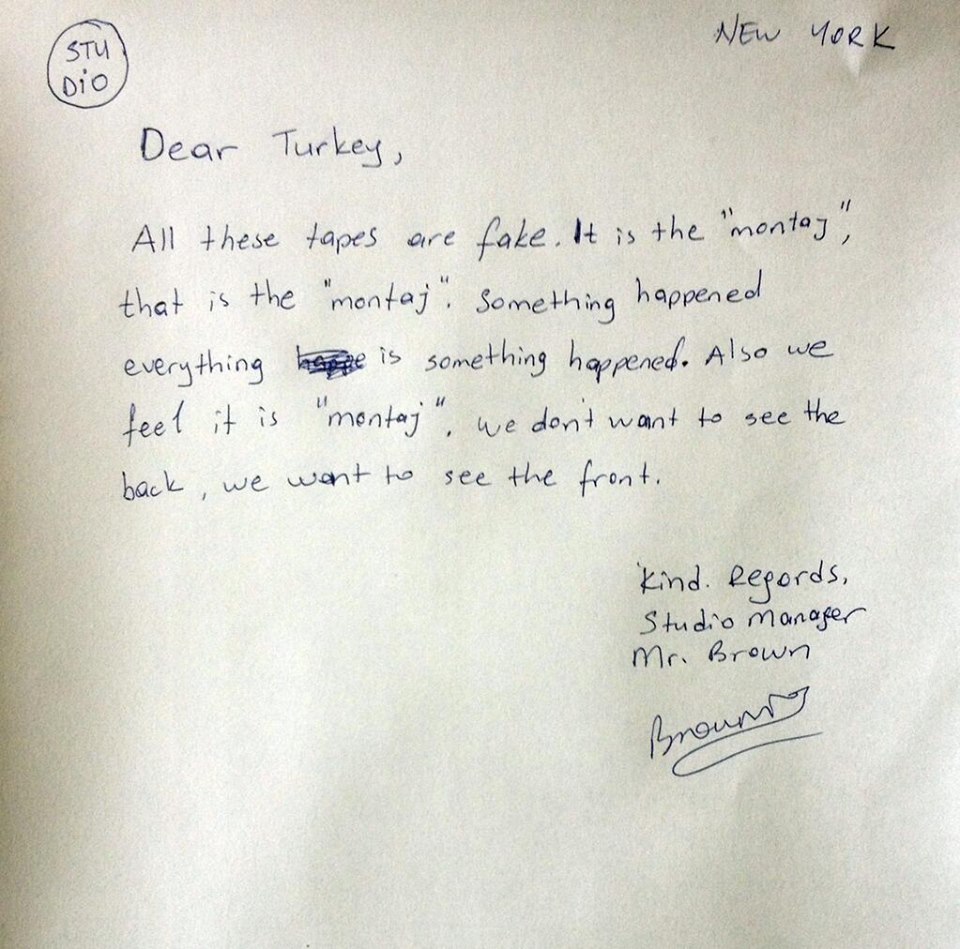 STU
DiO
NEW YORK
Dear Turkey,
All these tapes are fake. It is the "montaj",
that is the "montaj". Something happened
everything is something happened. Also we
feel it is "montaj". we don't want to see the
back, we want to see the front.
Kind. Regards,
Studio Manager
Mr. Brown
Brown